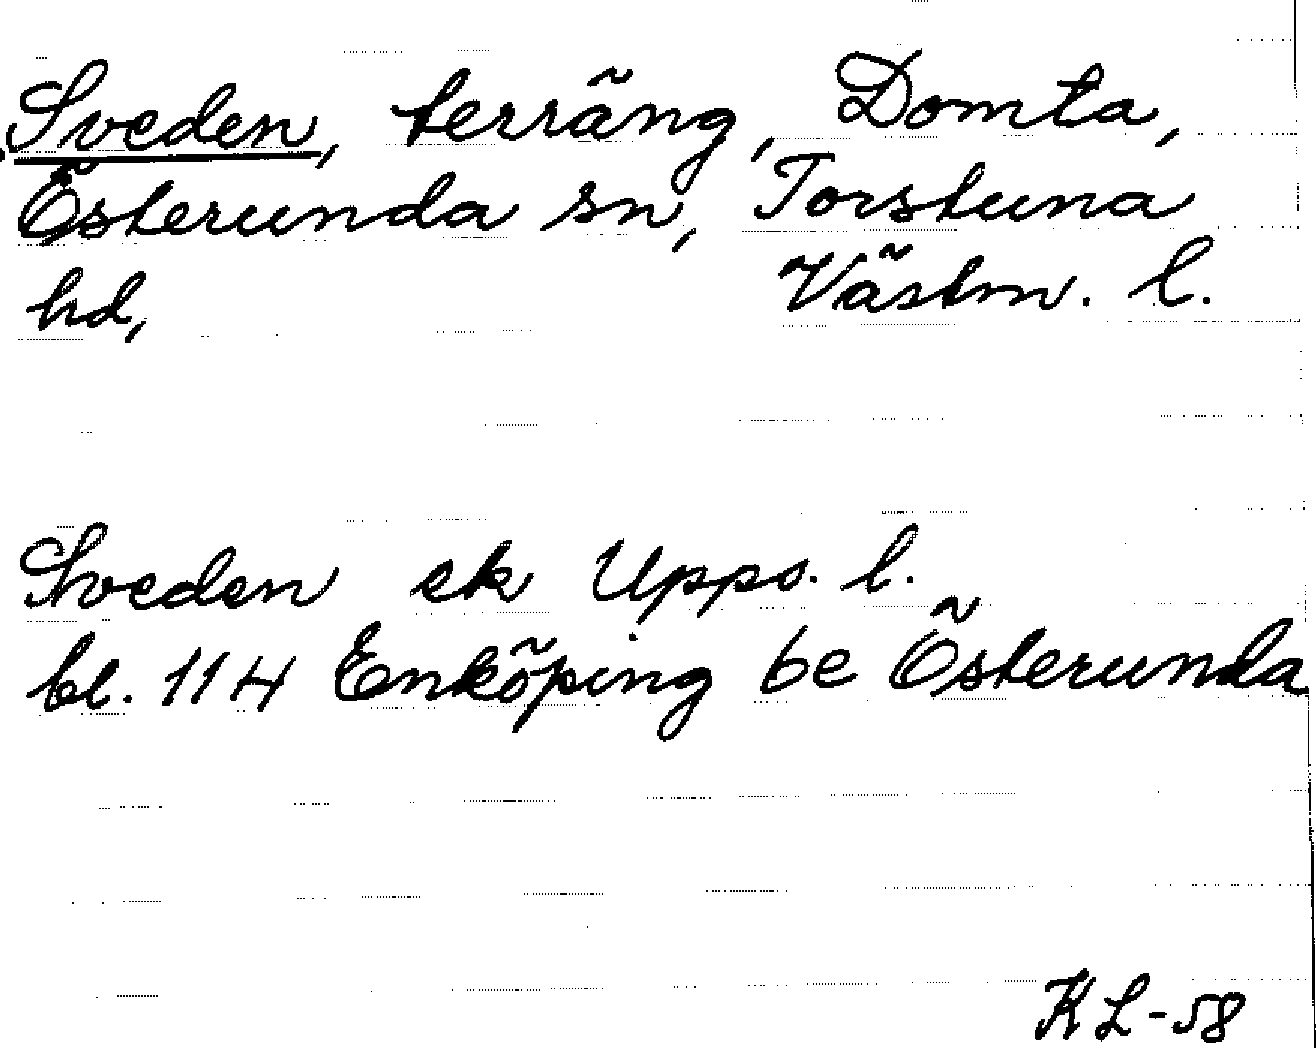 Sveden, terräng, Domta,
Österunda sn, Torstuna
hd, Västm. l.
Sveden ek Upps. l.
bl. 114 Enköping be Österunda
KL-58